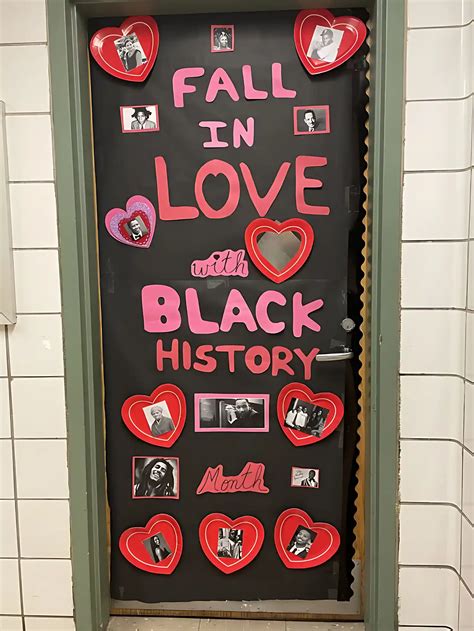 FALL
IN
LOVE
with
BLACK
HISTORY
Month